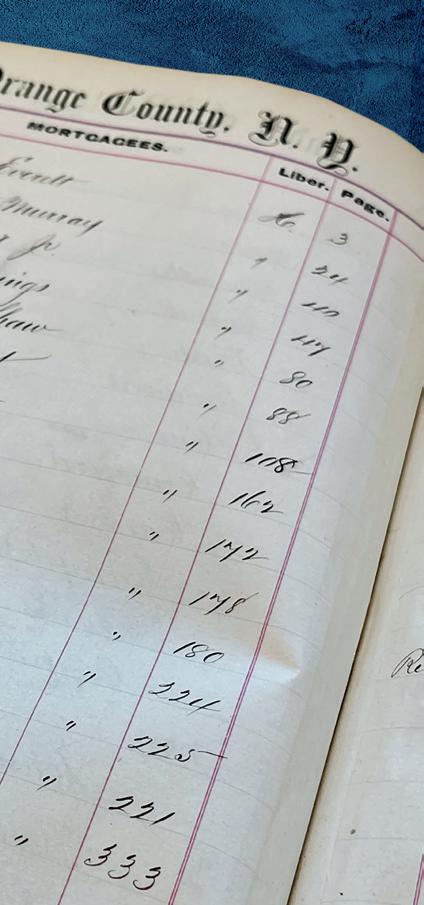 Orange County, N. Y.
MORTGAGEES. Liber. Page.
Everett 3
Murray " 24
Jr. " 40
ings " 47
haw " 80
" 88
" 108
" 162
" 172
" 178
" 180
" 224
" 225
" 221
" 333
Re